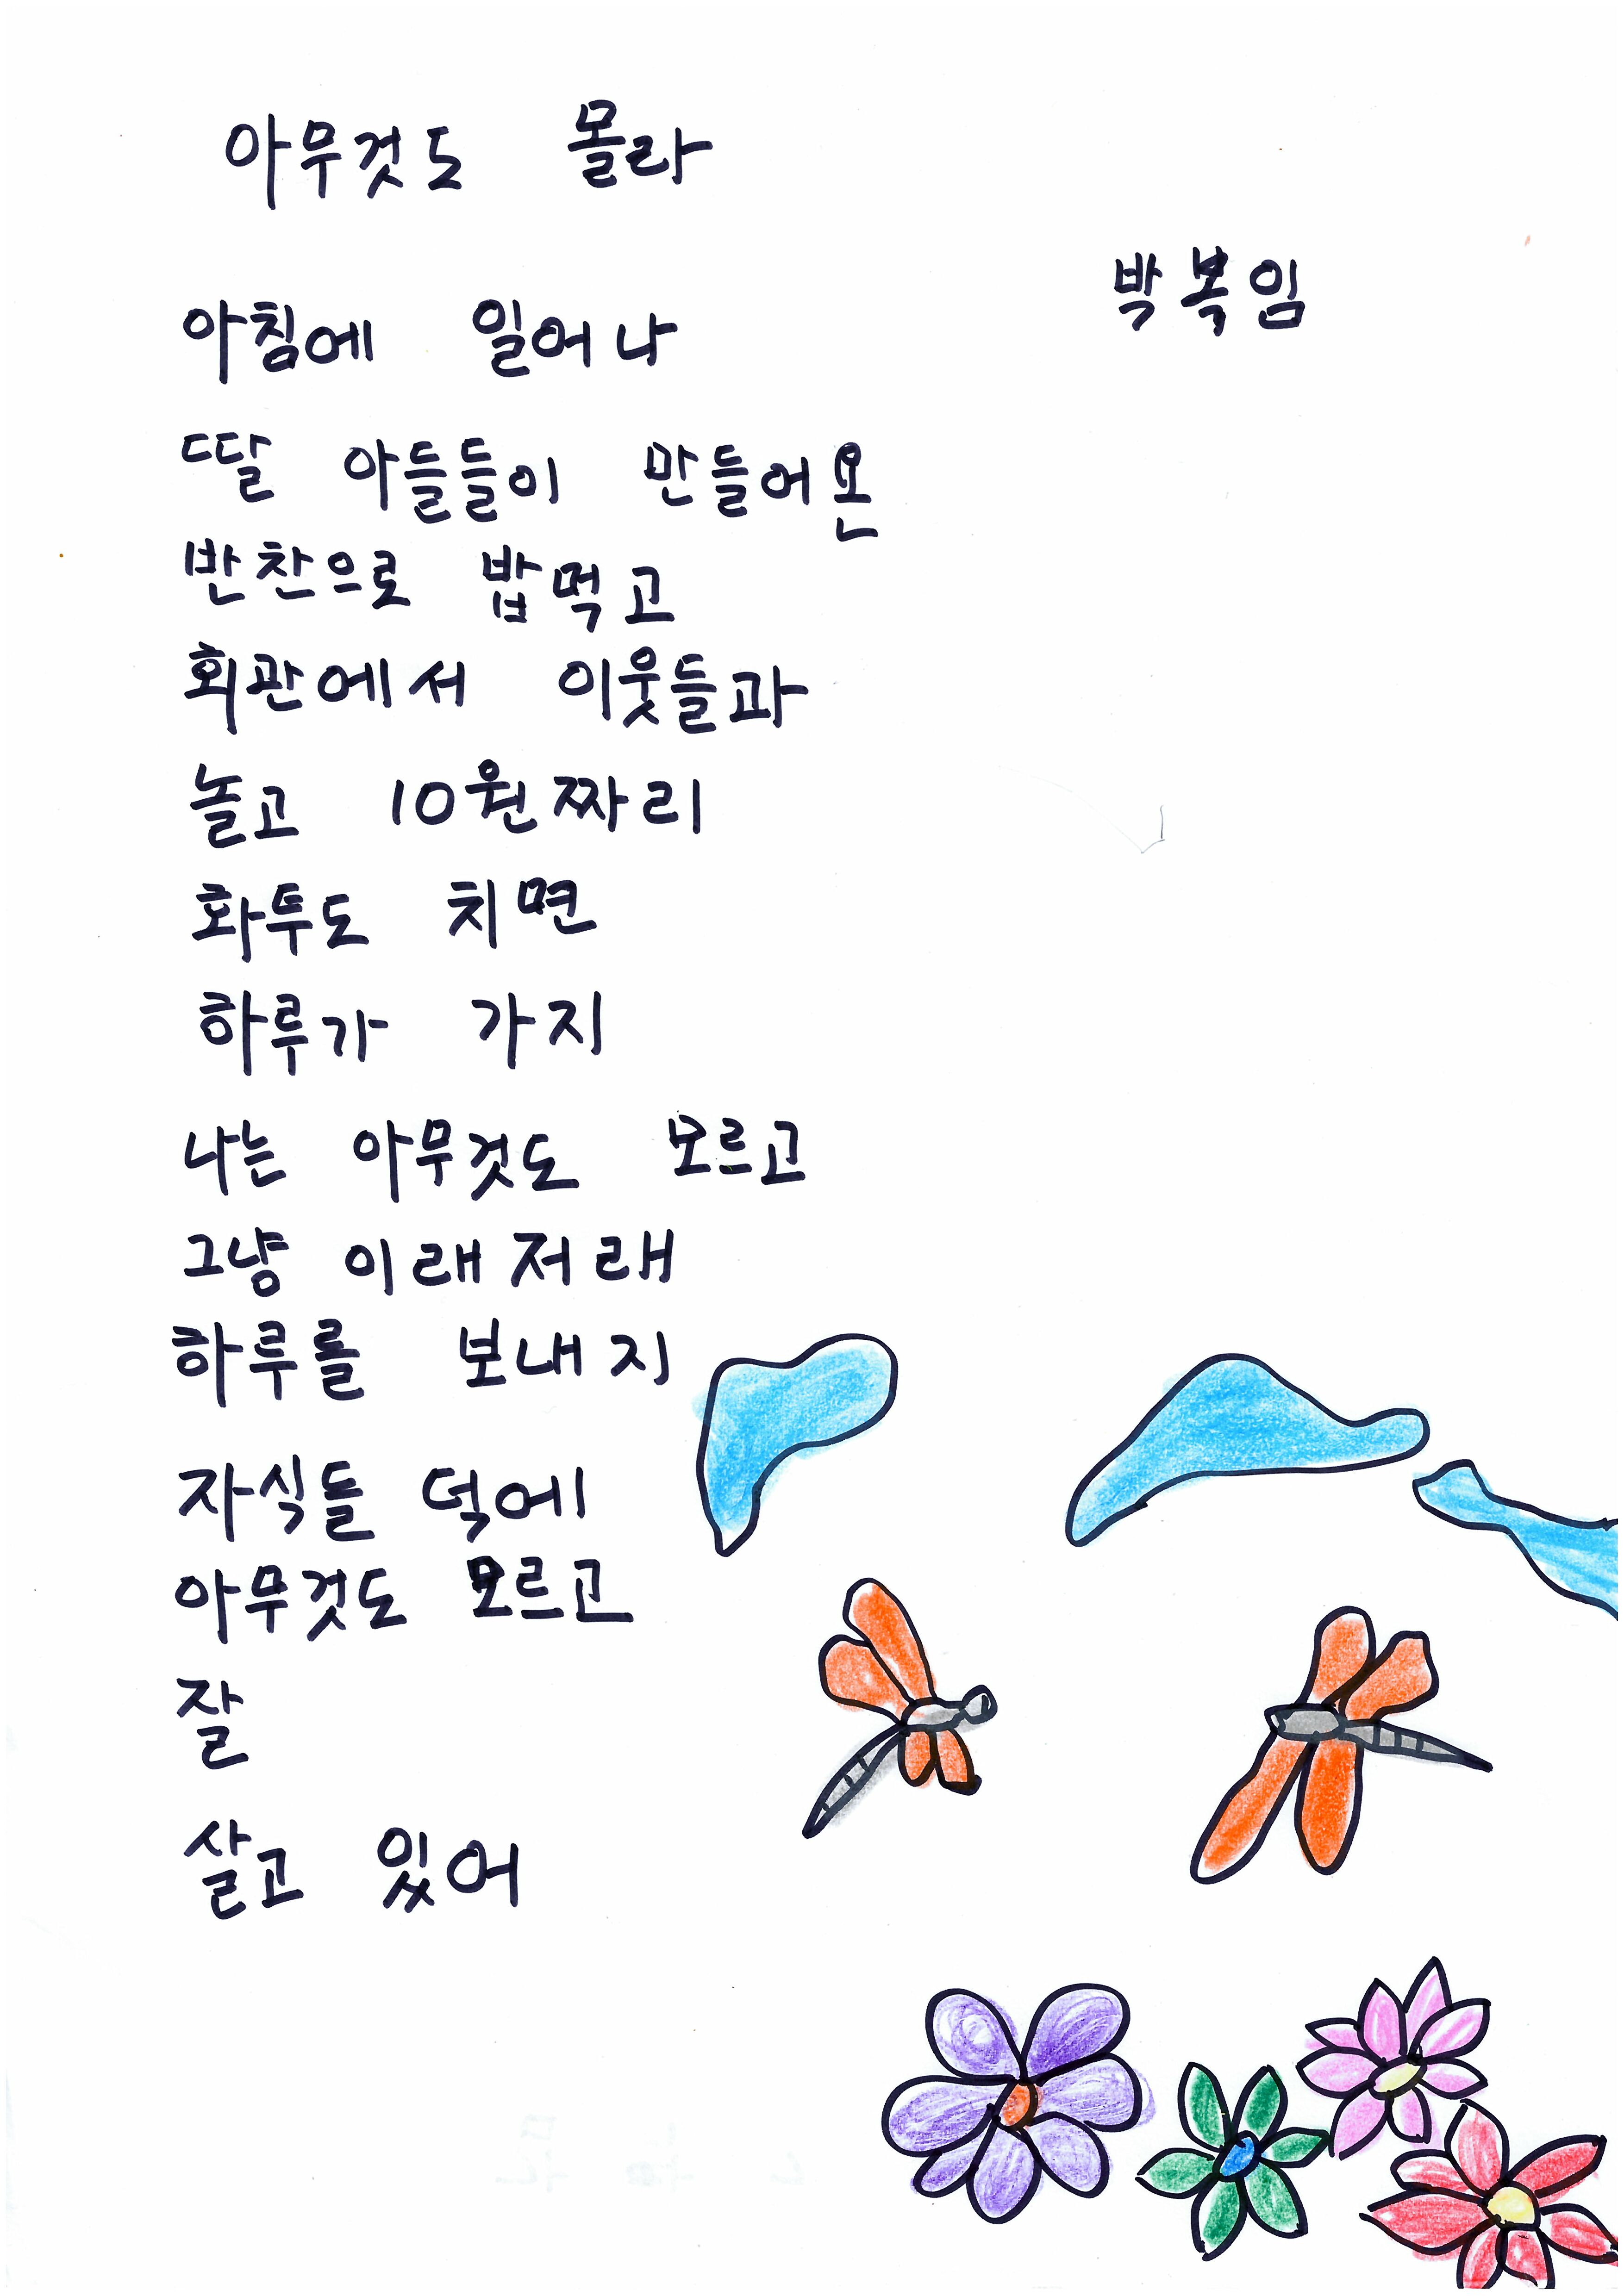 아무것도 몰라
박복임
아침에 일어나
딸 아들들이 만들어온
반찬으로 밥먹고
회관에서 이웃들과
놀고 10원짜리
화투도 치면
하루가 가지
나는 아무것도 모르고
그냥 이래저래
하루를 보내지
자식들 덕에
아무것도 모르고
잘
살고 있어